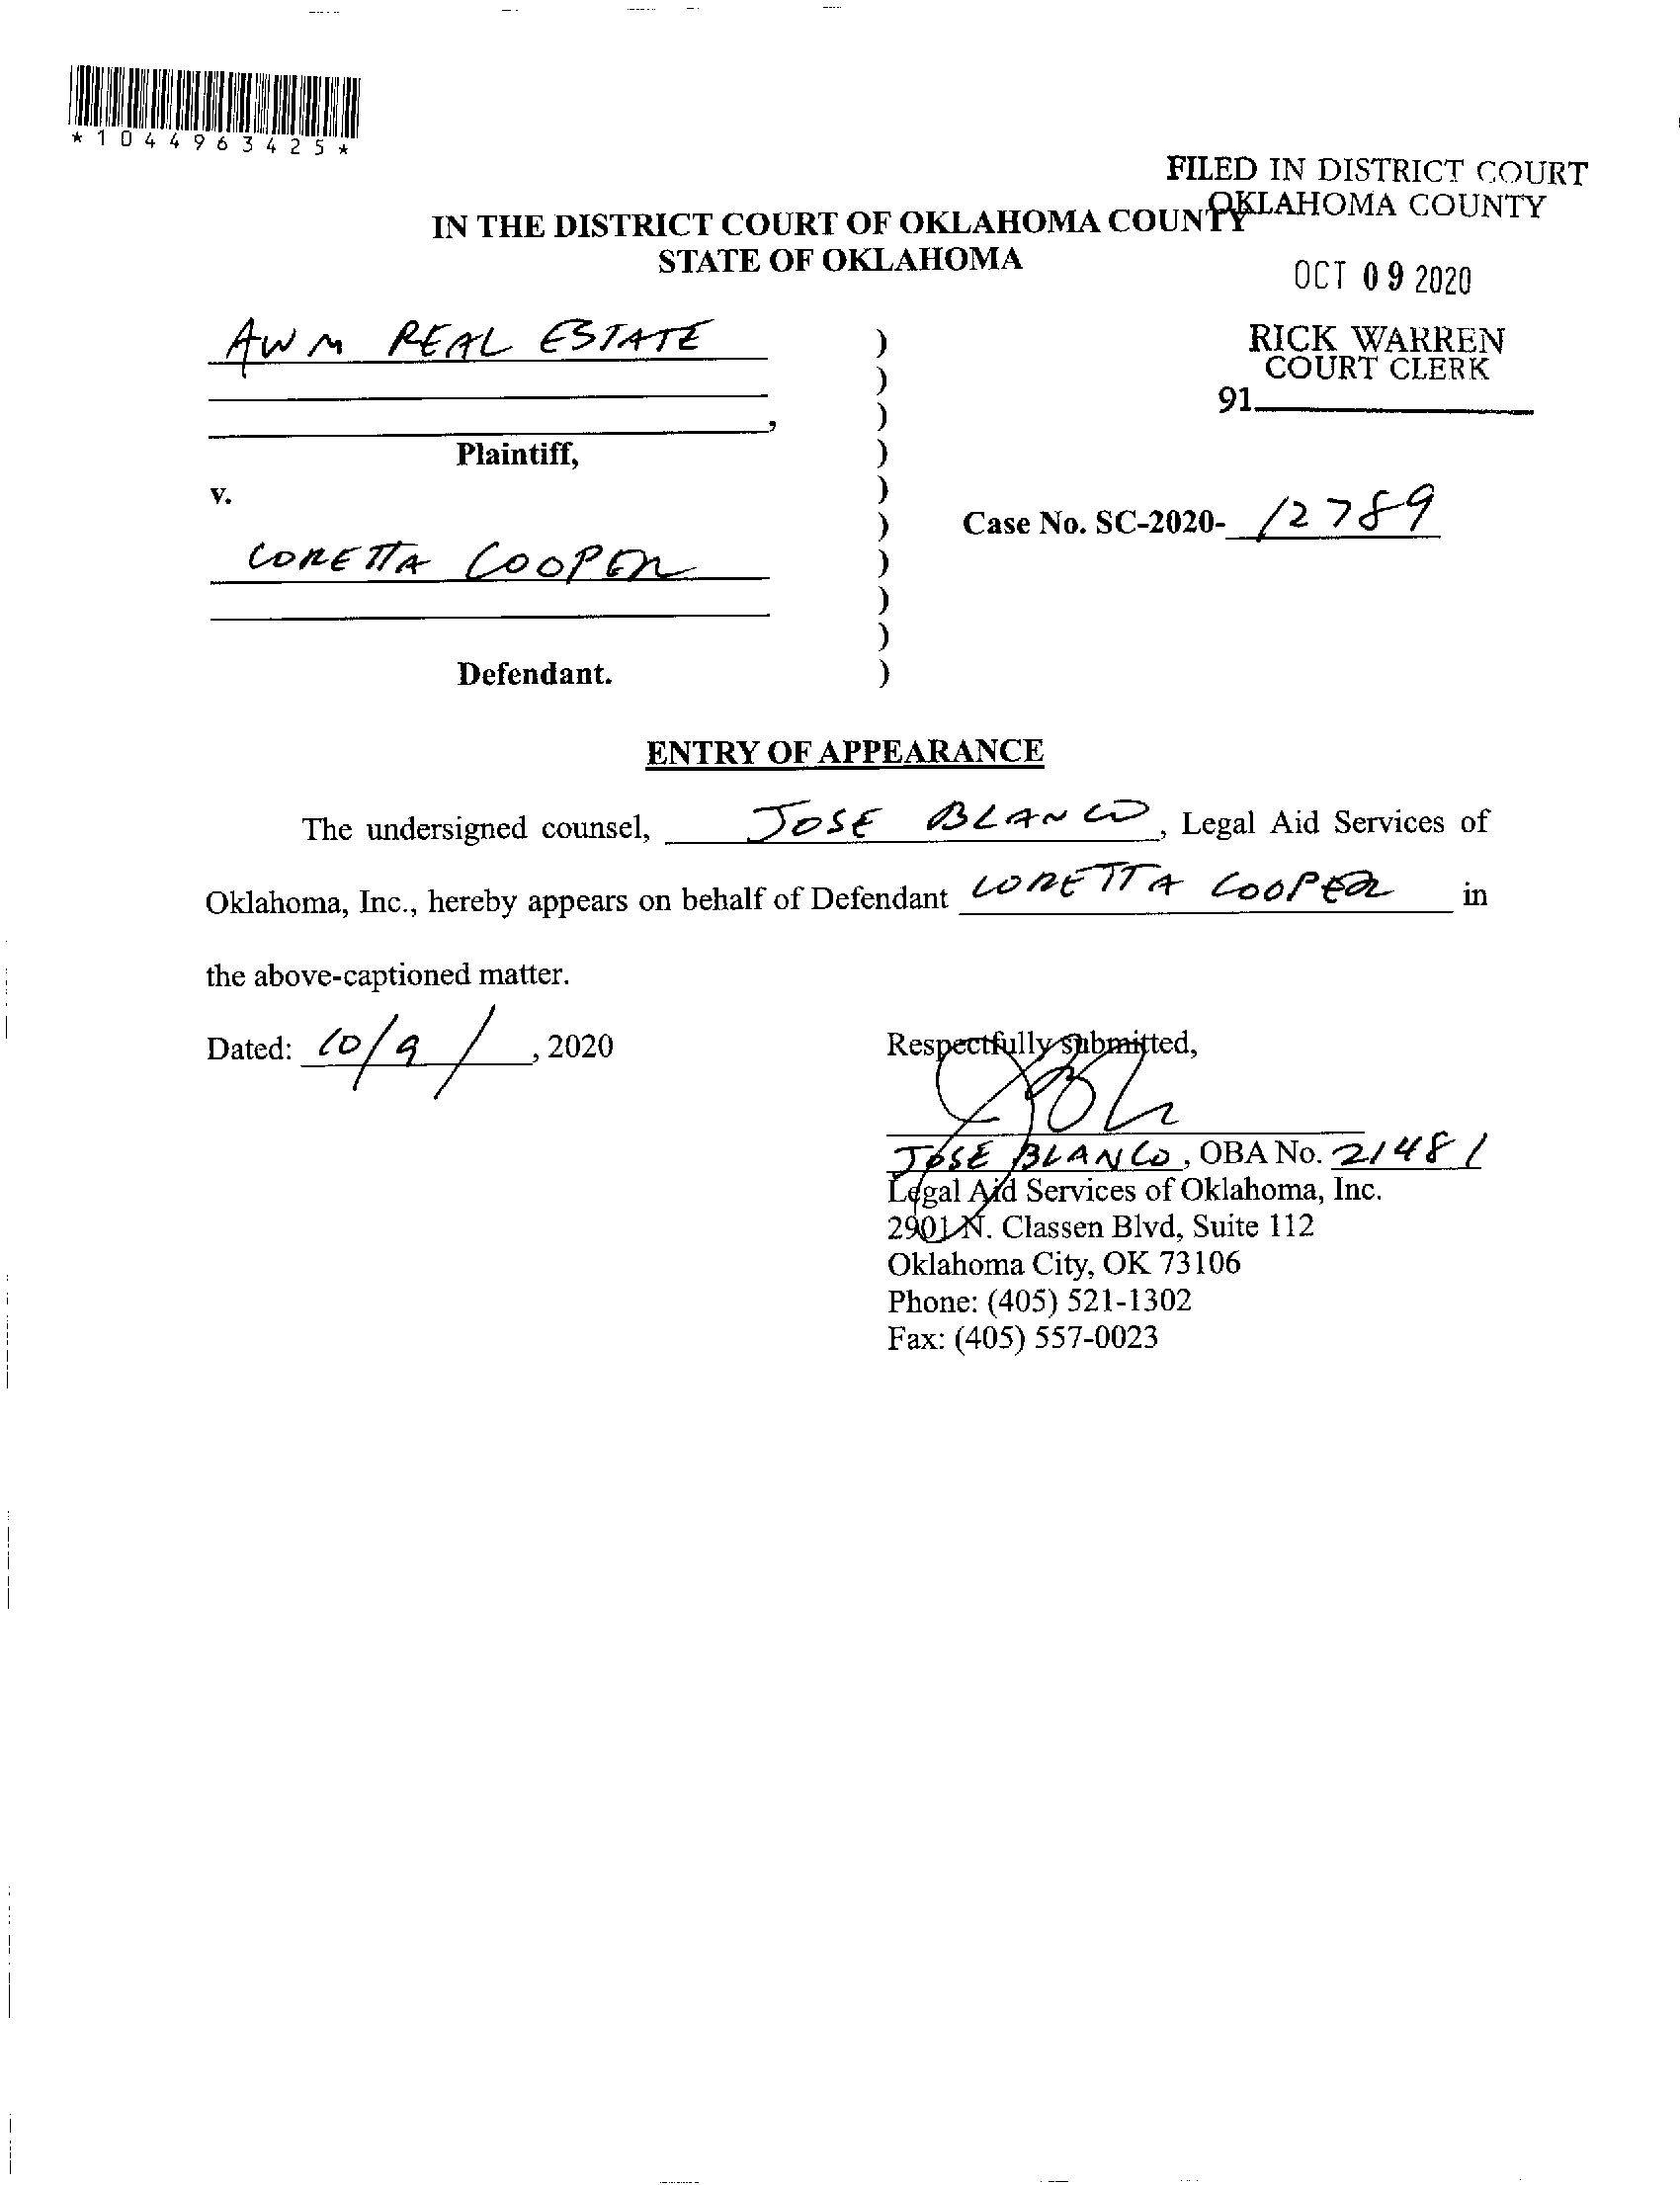 *1044963425*
FILED IN DISTRICT COURT
OKLAHOMA COUNTY
IN THE DISTRICT COURT OF OKLAHOMA COUNTY
STATE OF OKLAHOMA
OCT 09 2020
RICK WARREN
COURT CLERK
91
AWM REAL ESTATE
,
Plaintiff,
v.
Case No. SC-2020- 12789
LORETTA COOPER
Defendant.
)
)
)
)
)
)
)
)
)
)
ENTRY OF APPEARANCE
The undersigned counsel, JOSE BLANCO, Legal Aid Services of
Oklahoma, Inc., hereby appears on behalf of Defendant LORETTA COOPER in
the above-captioned matter.
Dated: 10/9/, 2020
Respectfully submitted,
JOSE BLANCO, OBA No. 21481
Legal Aid Services of Oklahoma, Inc.
2901 N. Classen Blvd, Suite 112
Oklahoma City, OK 73106
Phone: (405) 521-1302
Fax: (405) 557-0023